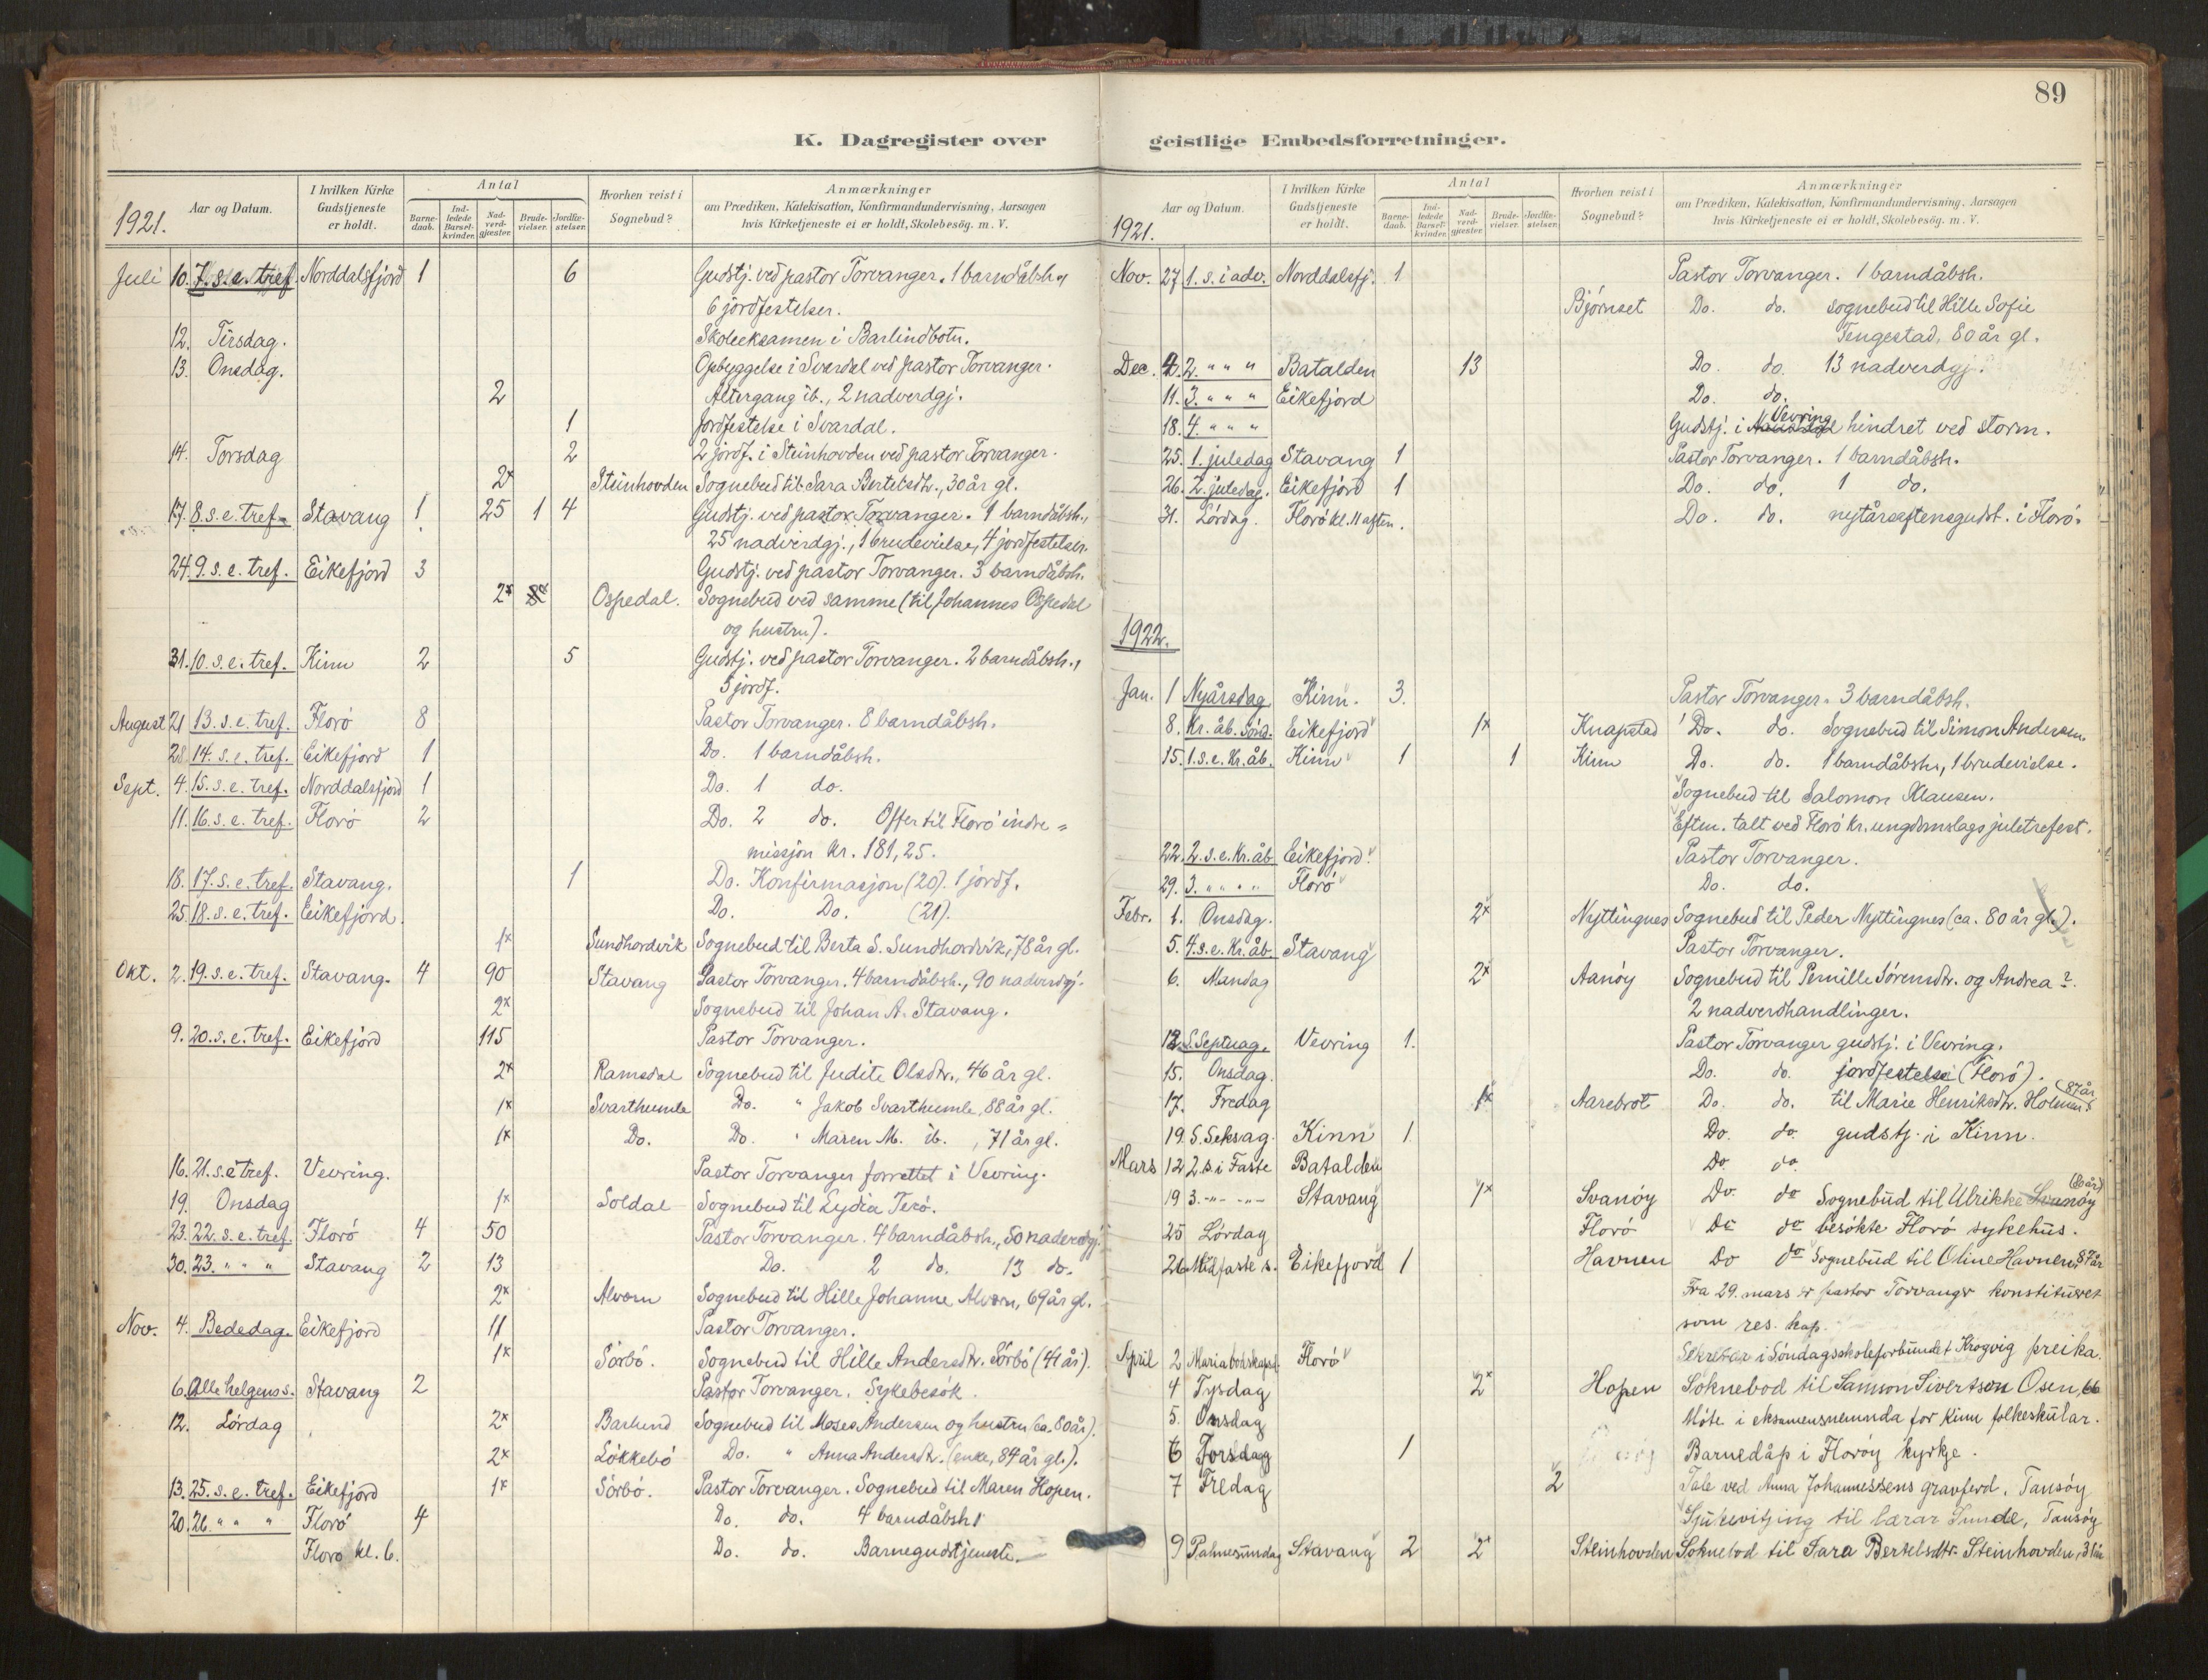 89
K. Dagregister over geistlige Embedsforretninger.
1921. Aar og Datum. I hvilken Kirke Gudstjeneste er holdt. Antal Barne-daab. Ind-ledede Barsel-kvinder. Nad-verd-gjæster. Brude-vielser. Jordfæ-stelser. Hvorhen reist i Sognebud? Anmærkninger om Prædiken, Katekisation, Konfirmandundervisning, Aarsagen hvis Kirketjeneste ei er holdt, Skolebesög. m. V.
Juli 10. 7. s. e. tref. Norddalsfjord 1 6 Gudstj. ved pastor Torvanger. 1 barndåbsh.,
6 jordfestelser.
12. Tirsdag. Skoleeksamen i Barlindbotn.
13. Onsdag. Opbyggelse i Svardal ved pastor Torvanger.
2 Altergang ib., 2 nadverdgj.
1 Jordfestelse i Svardal.
14. Torsdag 2 2 jordf. i Steinhovden ved pastor Torvanger.
2x Steinhovden Sognebud til Sara Bertelsdtr., 30 år gl.
17. 8. s. e. tref. Stavang 1 25 1 4 Gudstj. ved pastor Torvanger. 1 barndåbsh.,
25 nadverdgj., 1 brudevielse, 4 jordfestelser.
24. 9. s. e. tref. Eikefjord 3 Gudstj. ved pastor Torvanger. 3 barndåbsh.
2x Ospedal. Sognebud ved samme (til Johannes Ospedal
og hustru).
31. 10. s. e. tref. Kinn 2 5 Gudstj. ved pastor Torvanger. 2 barndåbsh.,
5 jordf.
August 21 13. s. e. tref. Florö 8 Pastor Torvanger. 8 barndåbsh.
28. 14. s. e. tref. Eikefjord 1 Do. 1 barndåbsh.
Sept. 4. 15. s. e. tref. Norddalsfjord 1 Do. 1 do.
11. 16. s. e. tref. Florö 2 Do. 2 do. Offer til Florö indre=
missjon kr. 181,25.
18. 17. s. e. tref. Stavang. 1 Do. Konfirmasjon (20). 1 jordf.
25. 18. s. e. tref. Eikefjord. Do. Do. (21).
1x Sundhordvik Sognebud til Berta S. Sundhordvik, 78 år gl.
Okt. 2. 19. s. e. tref. Stavang. 4 90 Stavang Pastor Torvanger. 4 barndåbsh., 90 nadverdgj.
2x Sognebud til Johan A. Stavang.
9. 20. s. e. tref. Eikefjord 115 Pastor Torvanger.
2x Ramsdal Sognebud til Judite Olsdtr., 46 år gl.
1x Svarthumle Do. " Jakob Svarthumle, 88 år gl.
1x Do. Do. " Maren M. ib., 71 år gl.
16. 21. s. e. tref. Vevring. Pastor Torvanger forrettet i Vevring.
19. Onsdag 1x Soldal Sognebud til Lydia Terö.
23. 22. s. e. tref. Florö 4 50 Pastor Torvanger. 4 barndåbsh., 50 nadverdgj.
30. 23. " " " Stavang 2 13 Do. 2 do. 13 do.
2x Alvorn Sognebud til Hille Johanne Alvorn, 69 år gl.
Nov. 4. Bededag. Eikefjord 11 Pastor Torvanger.
1x Sörbö. Sognebud til Hille Andersdtr. Sörbö (41 år).
6. Alle helgens s. Stavang 2 Pastor Torvanger. Sykebesök.
12. Lördag 2x Barlund Sognebud til Moses Andersen og hustru (ca. 80 år).
2x Lökkebö Do. " Anna Andersdtr. (enke, 84 år gl.).
13. 25. s. e. tref. Eikefjord 1x Sörbö. Pastor Torvanger. Sognebud til Maren Hopen.
20. 26. " " " Florö 4 Do. do. 4 barndåbsh
Florö kl. 6. Do. do. Barnegudstjeneste.
1921. Aar og Datum. I hvilken Kirke Gudstjeneste er holdt. Antal Barne-daab. Ind-ledede Barsel-kvinder. Nad-verd-gjæster. Brude-vielser. Jordfæ-stelser. Hvorhen reist i Sognebud? Anmærkninger om Prædiken, Katekisation, Konfirmandundervisning, Aarsagen hvis Kirketjeneste ei er holdt, Skolebesög. m. V.
Nov. 27 1. s. i adv. Norddalsfj. 1 Pastor Torvanger. 1 barndåbsh.
Björnset Do. do. sognebud til Hille Sofie
Tengestad, 80 år gl.
Dec. 4. 2. " " " Batalden 13 Do. do. 13 nadverdgj.
11. 3. " " " Eikefjord Do. do.
18. 4. " " " Gudstj. i Vevring hindret ved storm.
25. 1. juledag Stavang 1 Pastor Torvanger. 1 barndåbsh.
26. 2. juledag. Eikefjord 1 Do. do. 1 do.
31. Lördag. Florö kl. 11 aften. Do. do. nytårsaftensgudst. i Florö.
1922.
Jan. 1 Nyårsdag Kinn. 3. Pastor Torvanger. 3 barndåbsh.
8. Kr. åb. sönd. Eikefjord 1x Knapstad Do. do. Sognebud til Simon Andersen.
15. 1. s. e. Kr. åb. Kinn 1 1 Kinn Do. do. 1 barndåbsh., 1 brudevielse.
Sognebud til Salomon Klausen.
Eftm. talt ved Florö kr. ungdomslags juletrefest.
22. 2. s. e. Kr. åb. Eikefjord. Pastor Torvanger.
29. 3. " " " " Florö Do. do.
Febr. 1. Onsdag. 2x Nyttingnes Sognebud til Peder Nyttingnes (ca. 80 år gl.).
5. 4. s. e. Kr. åb. Stavang Pastor Torvanger.
6. Mandag 2x Aanöy Sognebud til Pernille Sörensdtr. og Andrea ?.
2 nadverdhandlinger.
12. S. Septuag. Vevring 1. Pastor Torvanger gudstj. i Vevring.
15. Onsdag. Do. do. jordfestelse (Florö).
17. Fredag 1x Aarebrot Do. do. til Marie Henriksdtr. Holmen (87 år).
19. S. Seksag. Kinn 1 Do. do. gudstj. i Kinn.
Mars 12 2. s. i Faste Batalden Do. do.
19 3. -"- -"- Stavang 1x Svanöy Do. do Sognebud til Ulrikke Svanöy
25 Lördag Florö Do do besökte Florö sykehus.
26 Midfaste s. Eikefjord 1 Havnen Do do Sognebud til Oline Havnen, 87 år
Fra 29. mars er pastor Torvanger konstituert
som res. kap.
April 2 Mariabodskapsd. Florö Sekretær i Söndagsskoleforbundet Krogvig preika.
4 Tysdag 2x Hopen Soknebod til Samson Sivertson Osen, 66
5. Onsdag Möte i eksamensnemnda for Kinn folkeskular.
6 Torsdag 1 Barnedåp i Floröy kyrkje.
7 Fredag 2 Tale ved Anna Johannessens gravferd, Tansöy
Sjukevitjing til lærar Sunde, Tansöy
9 Palmesundag Stavang 2 2x Steinhovden Soknebod til Sara Bertelsdtr. Steinhovden, 31 år